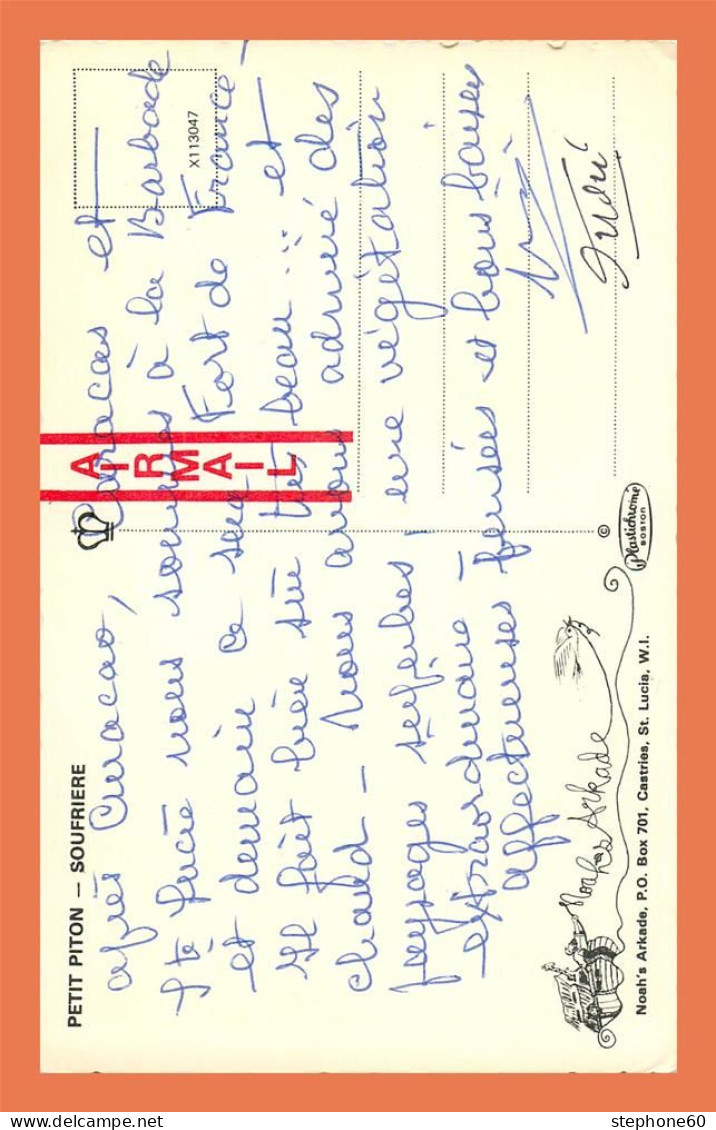 PETIT PITON — SOUFRIERE
après Curacao, Caracas et
Ste Lucie nous sommes à la Barbade
et demain ce sera Fort de France —
Il fait bien sûr très beau ... et
chaud — Nous avons admiré des
paysages superbes, une végétation
extraordinaire —
affectueuses pensées et bons baisers
AIR MAIL
X113047
©
Plastichrome
BOSTON
Noah's Arkade
Noah's Arkade, P.O. Box 701, Castries, St. Lucia, W.I.
stephone60